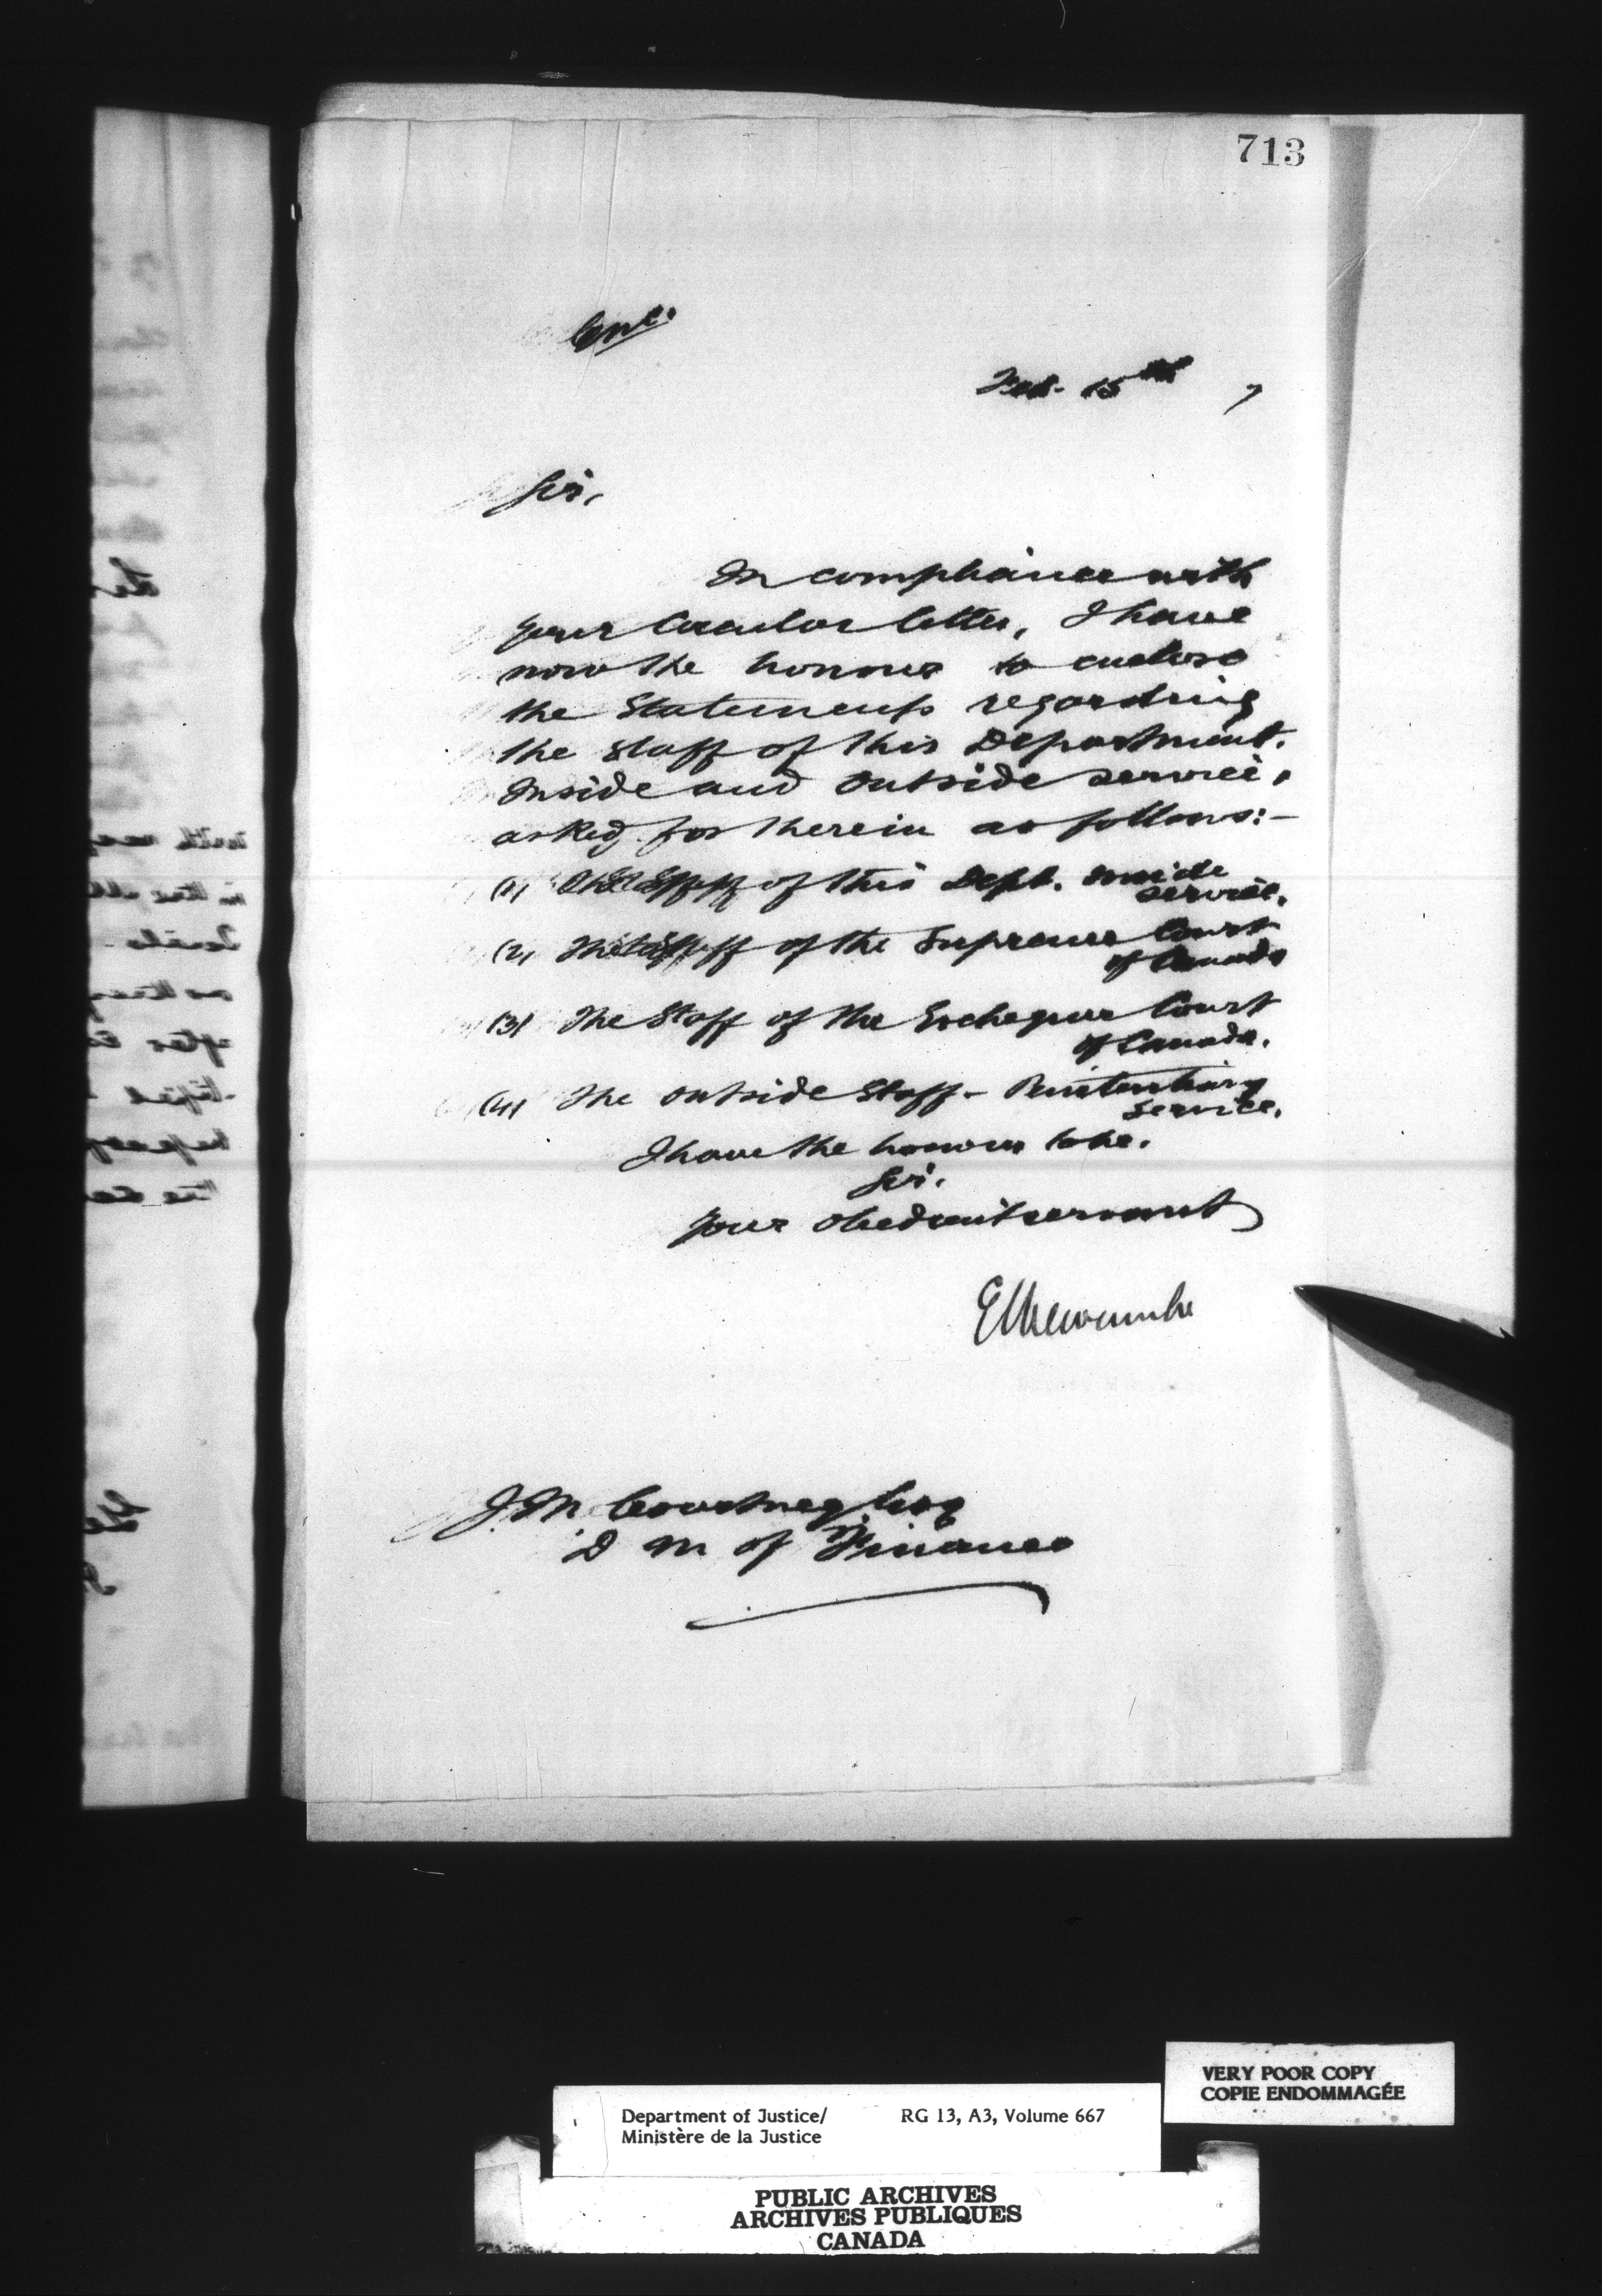 713
Enc.
Feb. 15th 7
Sir,
In compliance with
your Circular letter, I have
now the honour to enclose
the Statements regarding
the staff of this Department.
Inside and Outside service,
asked for therein as follows:-
(1) The Staff of this Dept. inside
service.
(2) The Staff of the Supreme Court
of Canada
(3) The Staff of the Exchequer Court
of Canada.
(4) The outside Staff - Penitentiary
Service.
I have the honour to be.
Sir.
Your obedient servant
E L Newcombe
J. M. Courtney Esq
D M of Finance
VERY POOR COPY
COPIE ENDOMMAGÉE
Department of Justice/ RG 13, A3, Volume 667
Ministère de la Justice
PUBLIC ARCHIVES
ARCHIVES PUBLIQUES
CANADA